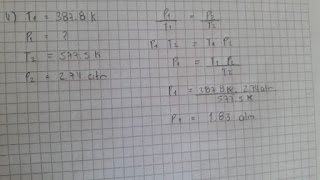 4) T₁ = 387.8 K
P₁ = ?
T₂ = 577.5 K
P₂ = 2.74 atm
P₁/T₁ = P₂/T₂
P₁ T₂ = T₁ P₂
P₁ = T₁ P₂/T₂
P₁ = 387.8K · 2.74 atm/577.5 K
P₁ = 1.83 atm